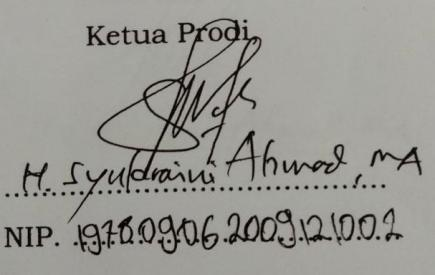 Ketua Prodi
H. Syukraini Ahmad, MA
NIP. 19780906.200912.1.002